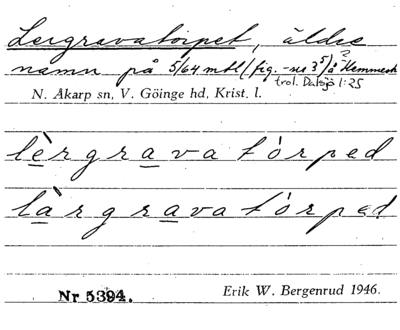 Lergravatorpet, äldre
namn på 5/64 mtl (fig.-nr 3⁵) å Hemmesk
?
trol. Dalsjö 1:25
N. Åkarp sn, V. Göinge hd, Krist. l.
lèrgravatòrped
làrgravatòrped
Nr 5394. Erik W. Bergenrud 1946.